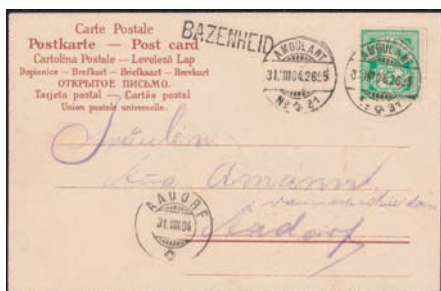 Carte Postale
Postkarte — Post card
Cartolina Postale – Levelező Lap
Dopisnice – Brefkort – Briefkaart – Brevkort
ОТКРЫТОЕ ПИСЬМО.
Tarjeta postal – Cartão postal
Union postale universelle.
BAZENHEID
AMBULANT
31.VIII.04.26
No 31
AMBULANT
Fräulein
Amann
Aadorf
AADORF
31.VIII.04